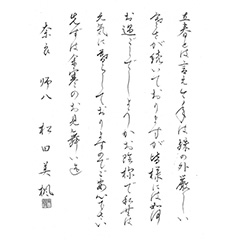 立春とは言え今年は殊の外厳しい
寒さが続いておりますが皆様には如何
お過ごでしょうかお陰様で私共は
元気に暮しておりますのでご安心下さい
先ずは余寒のお見舞い迄
奈良 師八 松田美楓